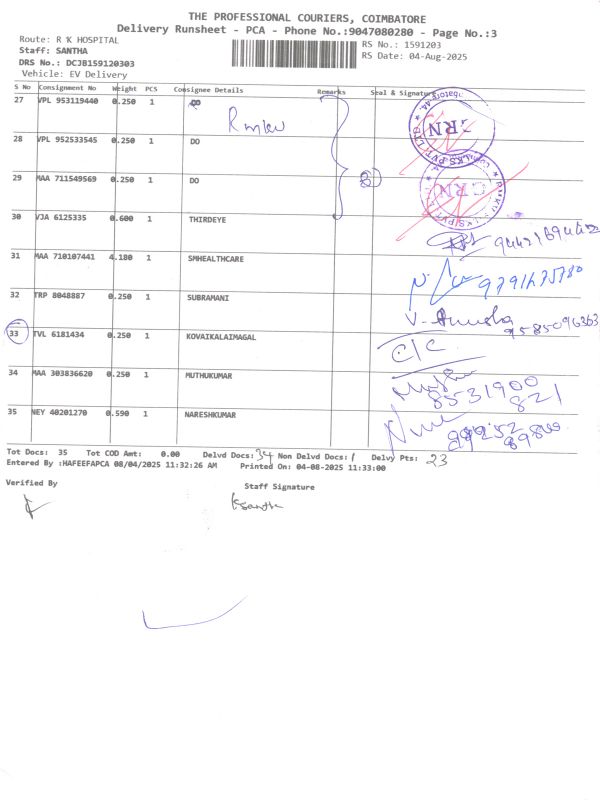 THE PROFESSIONAL COURIERS, COIMBATORE
Delivery Runsheet - PCA - Phone No.:9047080280 - Page No.:3
Route: R K HOSPITAL
RS No.: 1591203
Staff: SANTHA
RS Date: 04-Aug-2025
DRS No.: DCJB159120303
Vehicle: EV Delivery
S No Consignment No Weight PCS Consignee Details Remarks Seal & Signature
27 VPL 953119440 0.250 1 DO
28 VPL 952533545 0.250 1 DO
29 MAA 711549569 0.250 1 DO
30 VJA 6125335 0.600 1 THIRDEYE
31 MAA 710107441 4.180 1 SMHEALTHCARE
9791635780
32 TRP 8048887 0.250 1 SUBRAMANI
9585096363
33 TVL 6181434 0.250 1 KOVAIKALAIMAGAL C/C
34 MAA 303836620 0.250 1 MUTHUKUMAR
8531900
821
35 NEY 40201270 0.590 1 NARESHKUMAR
Tot Docs: 35 Tot COD Amt: 0.00 Delvd Docs: 34 Non Delvd Docs: 1 Delvy Pts: 23
Entered By :HAFEEFAPCA 08/04/2025 11:32:26 AM Printed On: 04-08-2025 11:33:00
Verified By
Staff Signature
Ksantha